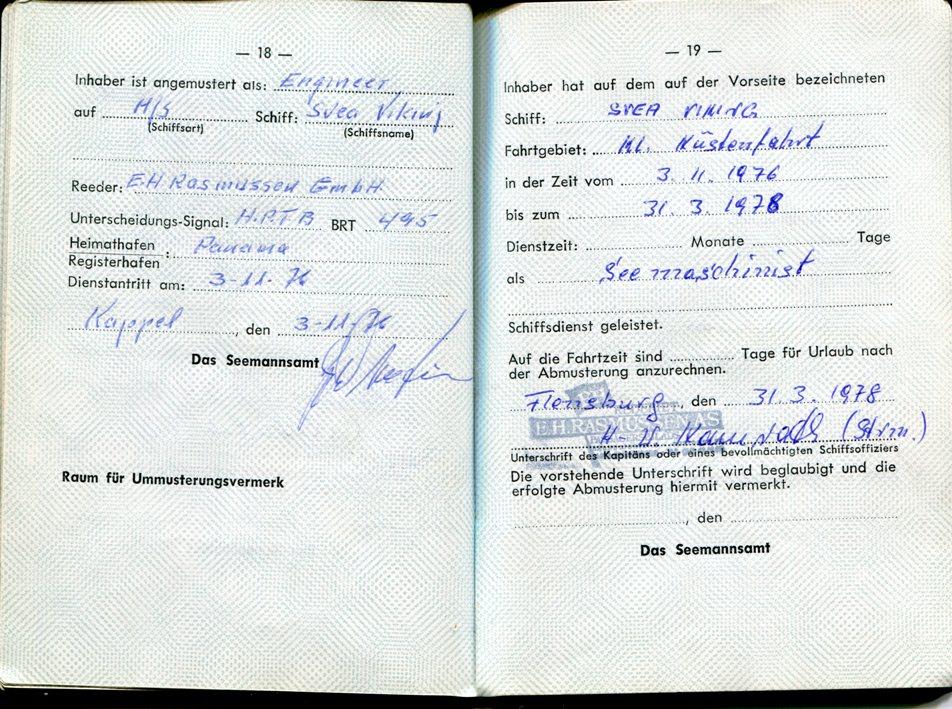 — 18 —
Inhaber ist angemustert als: Engineer
auf M/S Schiff: Svea Viking
(Schiffsart) (Schiffsname)
Reeder: E.H Rasmussen GmbH.
Unterscheidungs-Signal: H.P.T.B BRT 495
Heimathafen
Registerhafen : Panama
Dienstantritt am: 3-11-76
Kappel, den 3-11-76
Das Seemannsamt
Raum für Ummusterungsvermerk
— 19 —
Inhaber hat auf dem auf der Vorseite bezeichneten
Schiff: SVEA VIKING
Fahrtgebiet: Kl. Küstenfahrt
in der Zeit vom 3. 11. 1976
bis zum 31. 3. 1978
Dienstzeit: Monate Tage
als Seemaschinist
Schiffsdienst geleistet.
Auf die Fahrtzeit sind Tage für Urlaub nach
der Abmusterung anzurechnen.
Flensburg, den 31. 3. 1978
E.H. RASMUSSEN AS
(Strm.)
Unterschrift des Kapitäns oder eines bevollmächtigten Schiffsoffiziers
Die vorstehende Unterschrift wird beglaubigt und die
erfolgte Abmusterung hiermit vermerkt.
, den
Das Seemannsamt